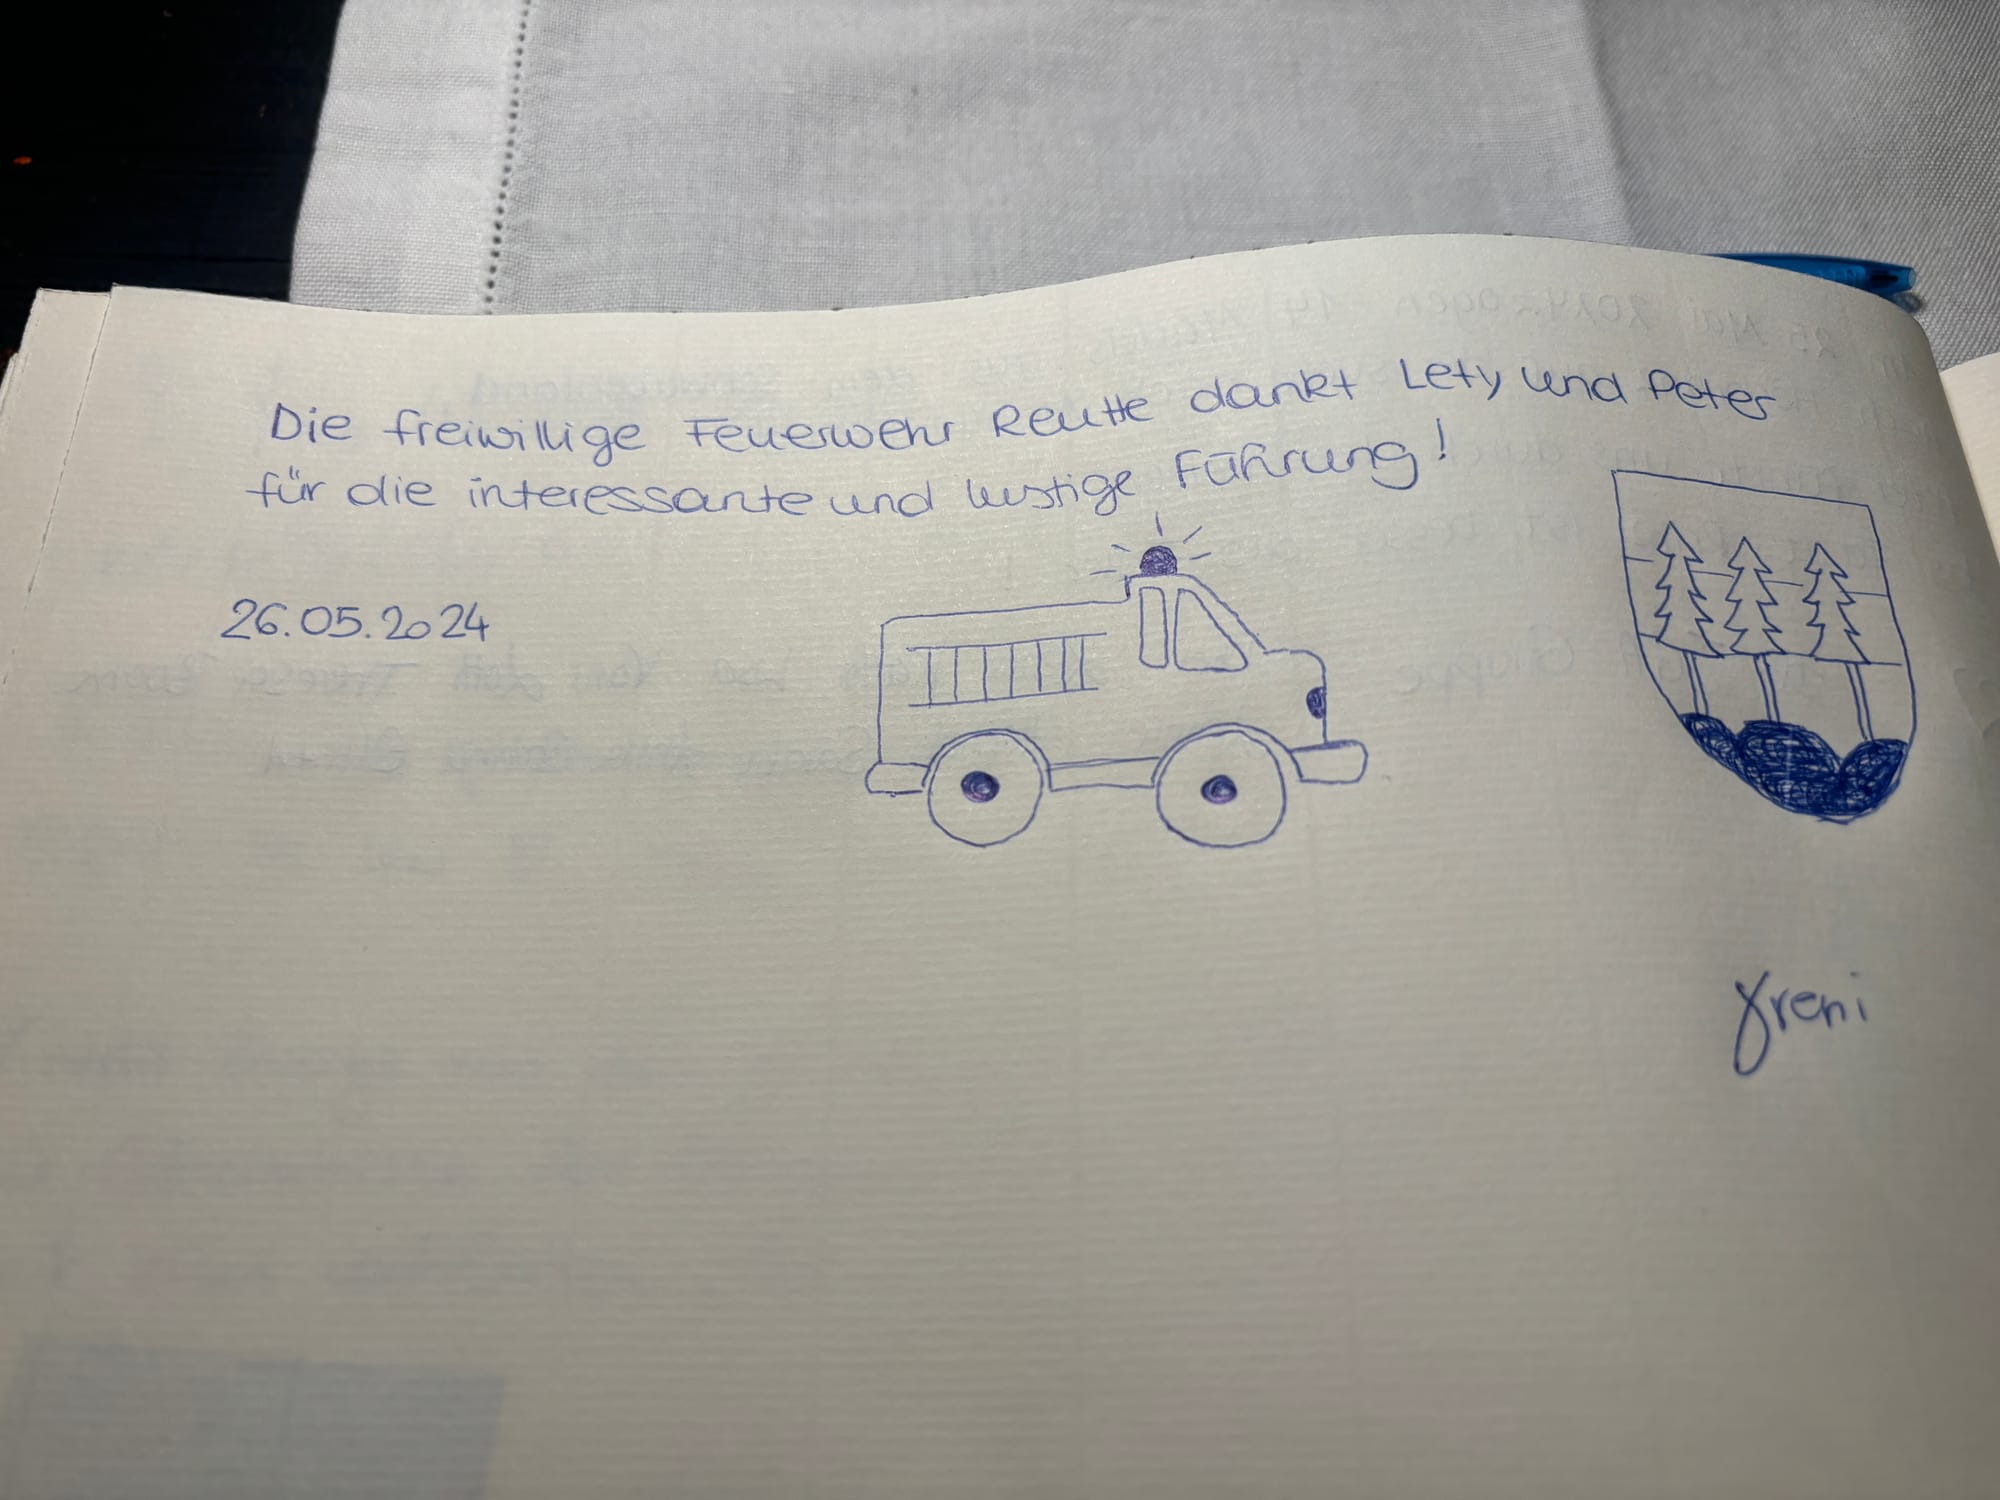 Die freiwillige Feuerwehr Reutte dankt Lety und Peter
für die interessante und lustige Führung!
26.05.2024
Vreni